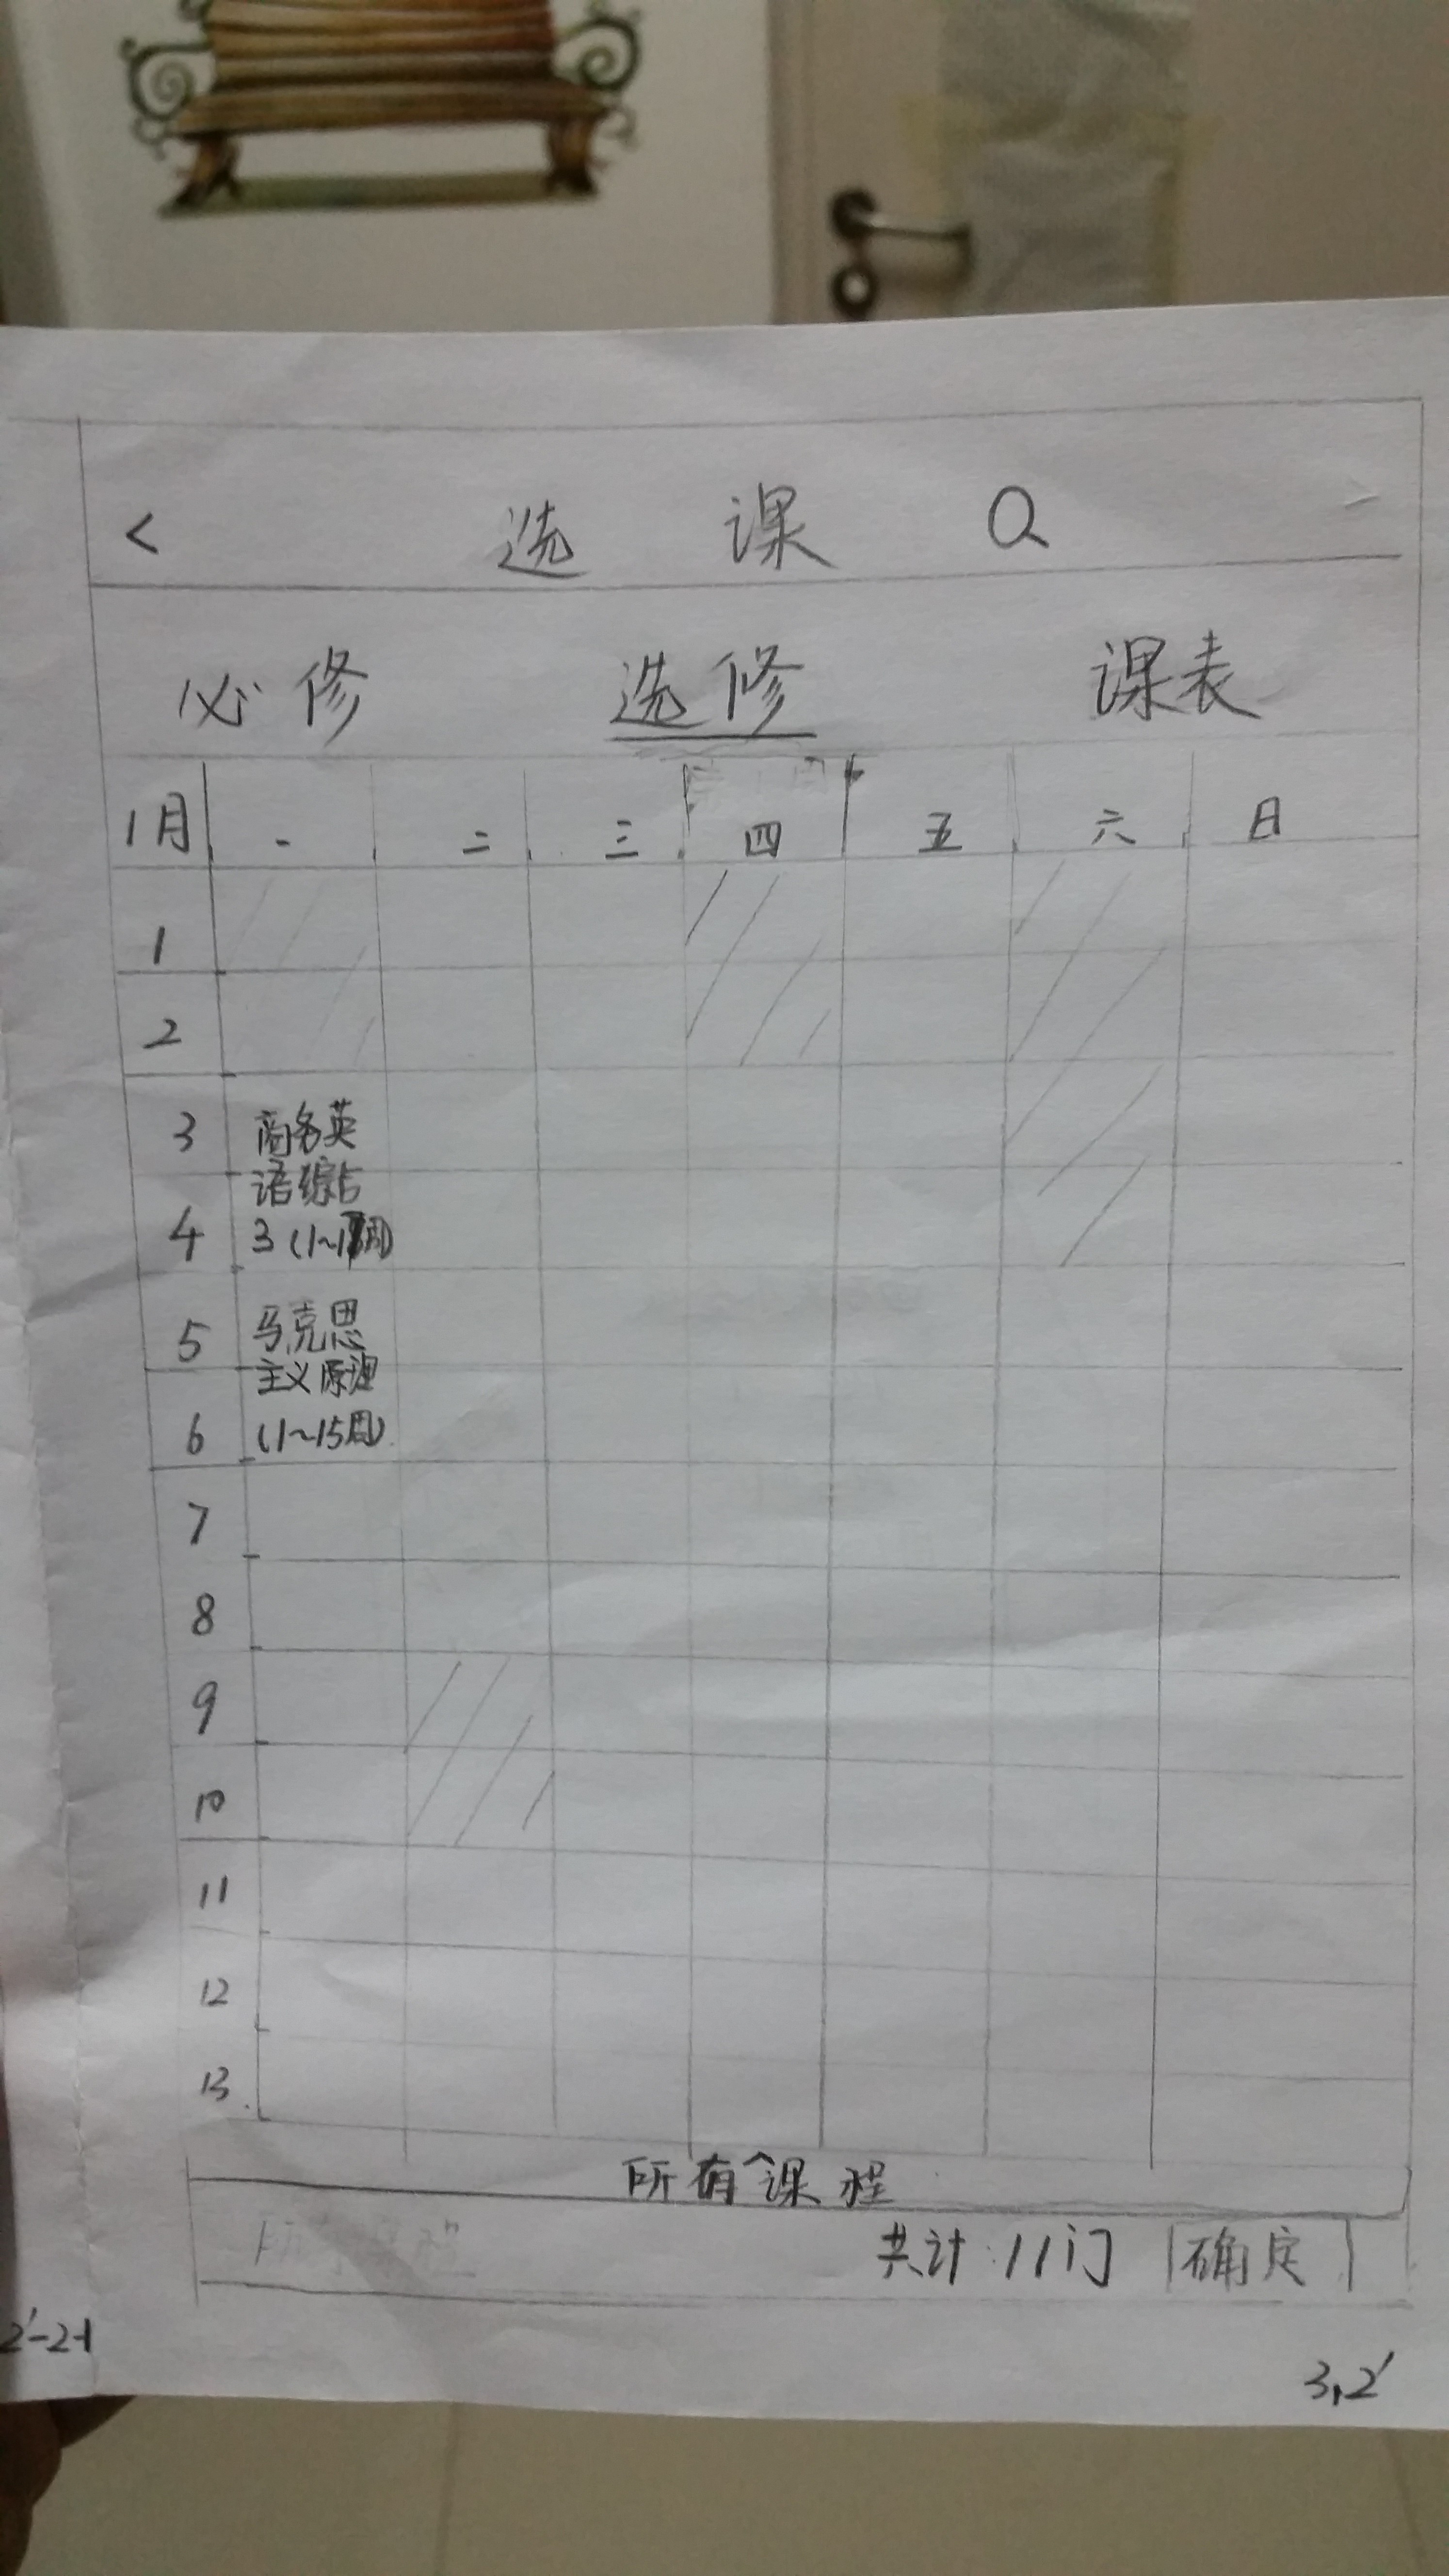 < 选课
必修 选修 课表
1月 一 二 三 四 五 六 日
1
2
3 商务英
语综合
4 3(1~1周)
5 马克思
主义原理
6 (1~15周)
7
8
9
10
11
12
13
所有课程
共计 11门 确定
2'-2-1
3,2'